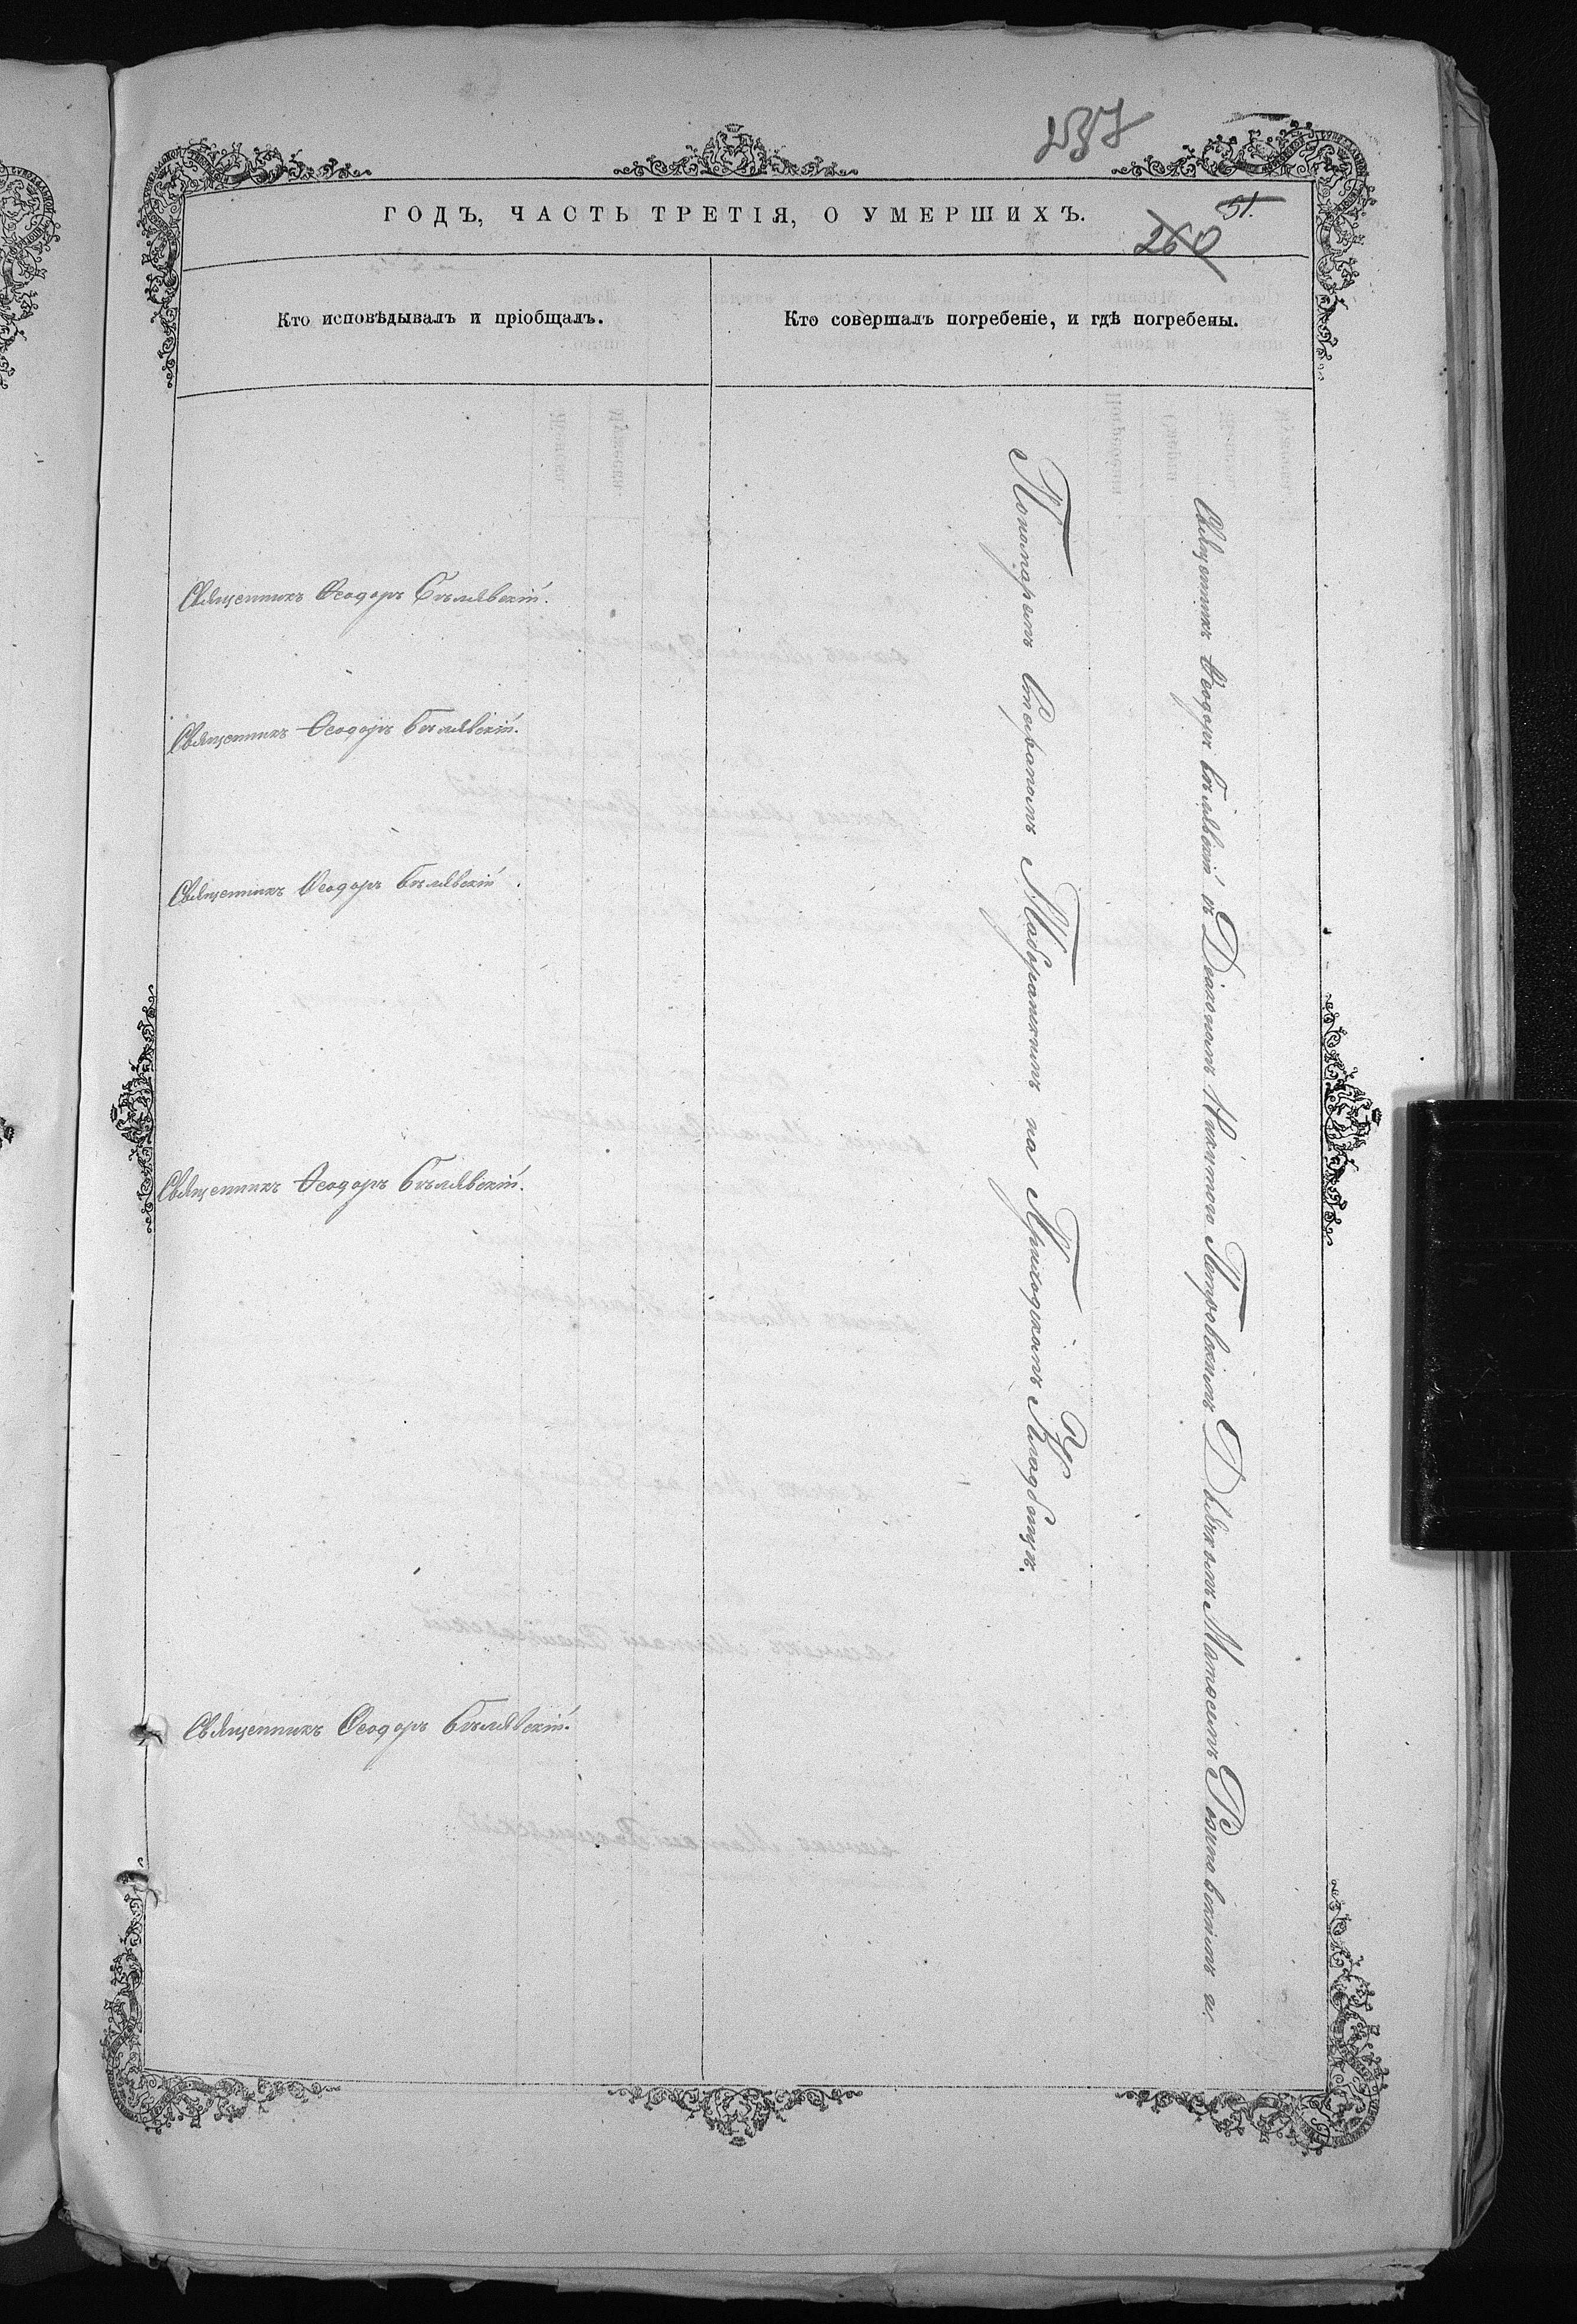 237
ГОДЪ, ЧАСТЬ ТРЕТІЯ, О УМЕРШИХЪ.
51.
260
Кто исповѣдывалъ и пріобщалъ.
Кто совершалъ погребеніе, и гдѣ погребены.
Священникъ Ѳеодоръ Бѣлявскій.
Священникъ Ѳеодоръ Бѣлявскій.
Священникъ Ѳеодоръ Бѣлявскій.
Священникъ Ѳеодоръ Бѣлявскій.
Священникъ Ѳеодоръ Бѣлявскій.
Священникъ Ѳеодоръ Бѣлявскій съ Діакономъ Никитою Петровскимъ Дьякомъ Матѳеемъ и
Пономаремъ Стефаномъ на Приходскомъ Кладбищѣ.